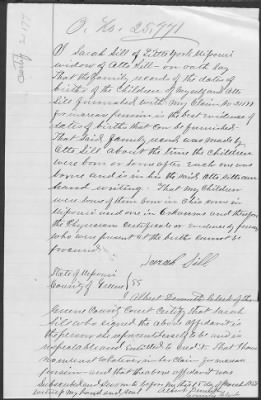 O. No. 25,971
I Sarah Sill of Little York Missouri
widow of Otto Sill - on oath say
That the family record of the dates of
births of the children of myself and Otto
Sill furnished with my Claim No
for increase pension is the best evidence of
dates of births that can be furnished.
That said family record was made by
Otto Sill about the times the children
were born or soon after each one was
borne and is in his the said Otto Sill own
hand writing. That my children
were some of them born in Ohio some in
Missouri and one in Arkansas and therefore
the Physician Certificate or evidence of persons
who were present at the births cannot be
procured.
Sarah Sill
State of Missouri
County of Greene } SS
I Albert Demuth Clerk of the
Greene County Court Certify that Sarah
Sill who signed the above affidavit is
the person she represents herself to be and is
respectable and entitled to credit. That I have
no interest relative in her claim for increase
pension - and that the above affidavit was
Subscribed and sworn to before me this day of March
witness my hand and seal
Albert Demuth
County Clerk